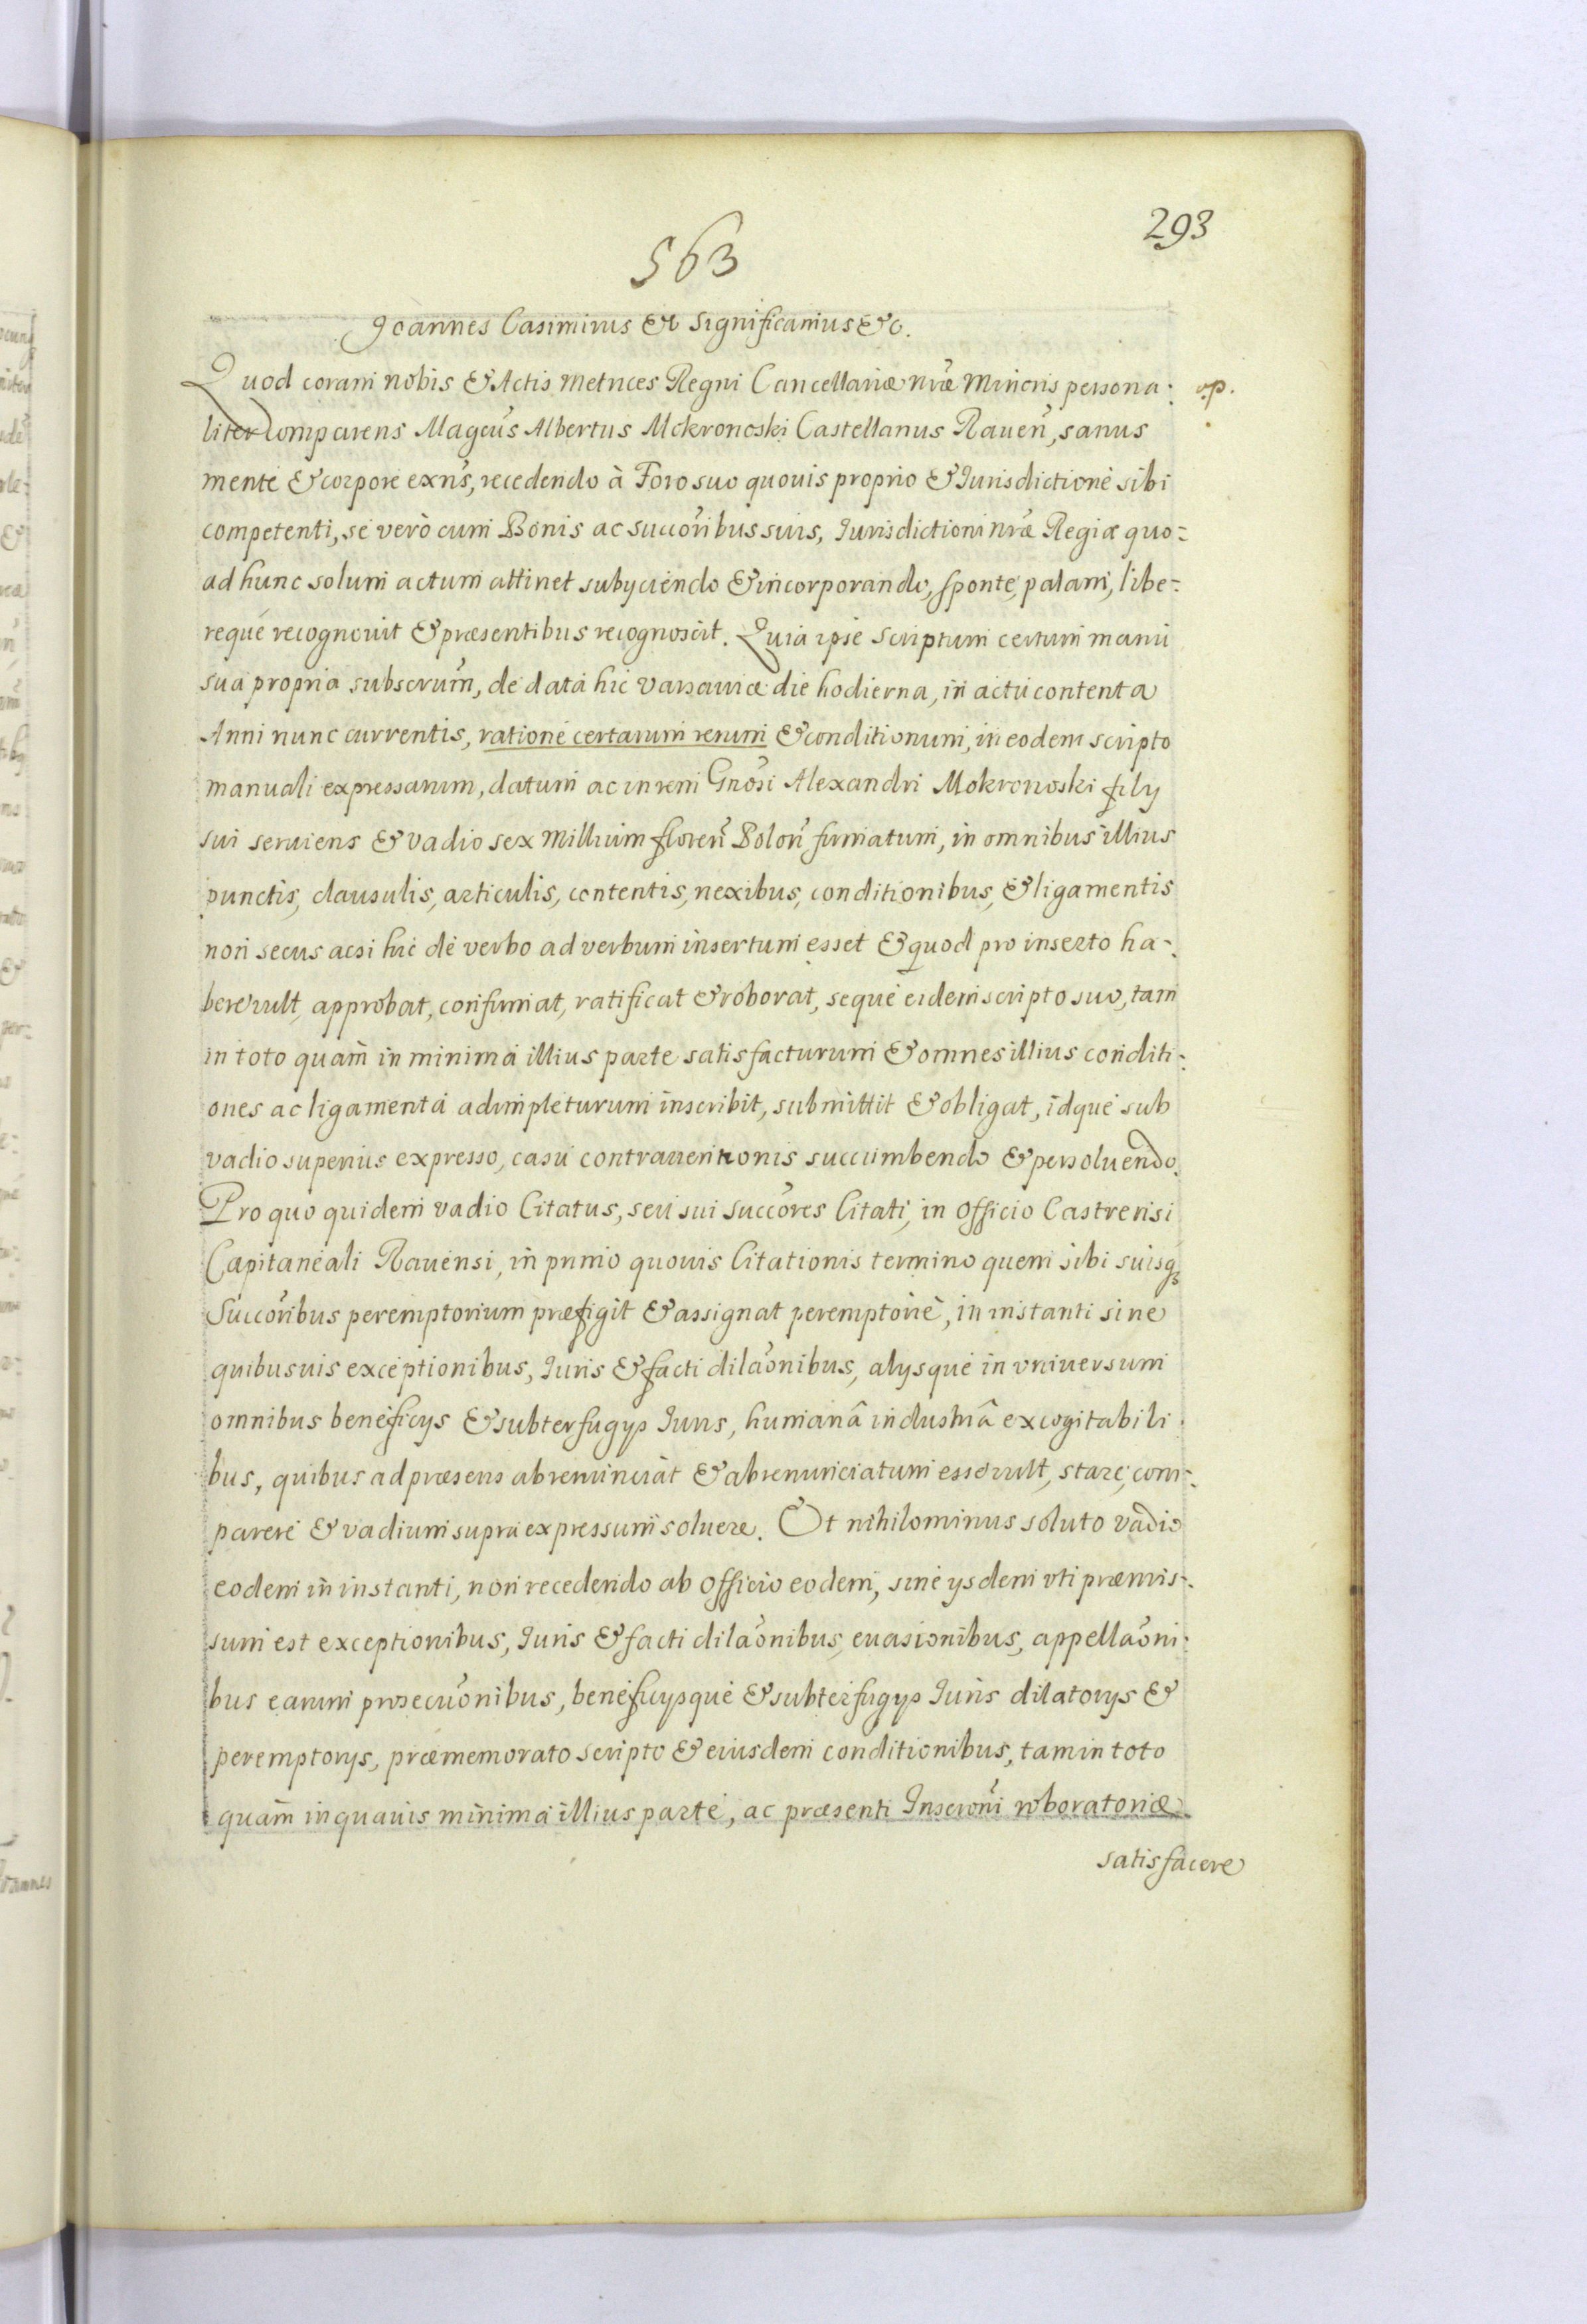 293
563
Joannes Casimirus &c Significamus &c.
Quod coram nobis & Actis Metrices Regni Cancellariæ nræ Minoris persona: op.
liter Comparens Magcus Albertus Mokronoski Castellanus Rauen, sanus
mente & corpore exns, recedendo à Foro suo quouis proprio & Jurisdictione sibi
competenti, se verò cum Bonis ac succoribus suis, Jurisdictioni nræ Regiæ quo-
ad hunc solum actum attinet subyciendo & incorporando, sponte, palam, libe-
reque recognouit & præsentibus recognoscit. Quia ipse Scriptum certum manu
sua propria subscrum, de data hic Varsauiæ die hodierna, in actu contenta
Anni nunc currentis, ratione certarum rerum & conditionum, in eodem scripto
manuali expressarum, datum ac in rem Gnosi Alexandri Mokronoski fily
sui seruiens & vadio sex Millium floren Polon firmatum, in omnibus illius
punctis, clausulis, articulis, contentis, nexibus, conditionibus, & ligamentis
non secus acsi hic de verbo ad verbum insertum esset & quod pro inserto ha-
bere vult, approbat, confirmat, ratificat & roborat, seque eidem scripto suo, tam
in toto quam in minima illius parte satisfacturum & omnes illius conditi:
ones ac ligamenta adimpleturum inscribit, submittit & obligat, idque sub
vadio superius expresso, casu contrauentionis succumbendo & persoluendo.
Pro quo quidem vadio Citatus, seu sui succores Citati, in Officio Castrensi
Capitaneali Rauensi, in primo quouis Citationis termino quem sibi suisq
Succoribus peremptorium præfigit & assignat peremptoriè, in instanti sine
quibusuis exceptionibus, Juris & facti dilaonibus, alysque in vniuersum
omnibus beneficys & subterfugys Juris, humanâ industriâ excogitabili
bus, quibus ad præsens abrenunciat & abrenunciatum esse vult, stare, com-
parere & vadium supra expressum soluere. Et nihilominus soluto vadio
eodem in instanti, non recedendo ab Officio eodem, sine ysdem vti præmis-
sum est exceptionibus, Juris & facti dilaonibus, euasionibus, appellaoni:
bus earum prosecuonibus, beneficysque & subterfugys Juris dilatorys &
peremptorys, præmemorato scripto & eiusdem conditionibus, tam in toto
quam in quauis minima illius parte, ac præsenti Inscroni roboratoriæ
satisfacere